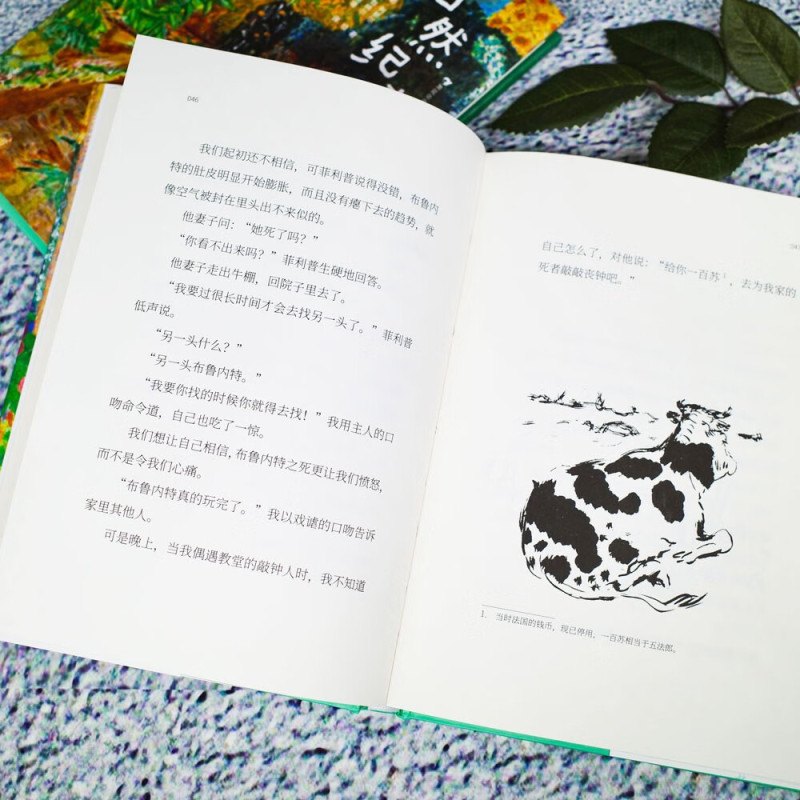 然
纪
046
我们起初还不相信，可菲利普说得没错，布鲁内
特的肚皮明显开始膨胀，而且没有瘪下去的趋势，就
像空气被封在里头出不来似的。
他妻子问：“她死了吗？”
“你看不出来吗？”菲利普生硬地回答。
他妻子走出牛棚，回院子里去了。
“我要过很长时间才会去找另一头了。”菲利普
低声说。
“另一头什么？”
“另一头布鲁内特。”
“我要你找的时候你就得去找！”我用主人的口
吻命令道，自己也吃了一惊。
我们想让自己相信，布鲁内特之死更让我们愤怒，
而不是令我们心痛。
“布鲁内特真的玩完了。”我以戏谑的口吻告诉
家里其他人。
可是晚上，当我偶遇教堂的敲钟人时，我不知道
自己怎么了，对他说：“给你一百苏¹，去为我家的
死者敲敲丧钟吧。”
1. 当时法国的钱币，现已停用，一百苏相当于五法郎。